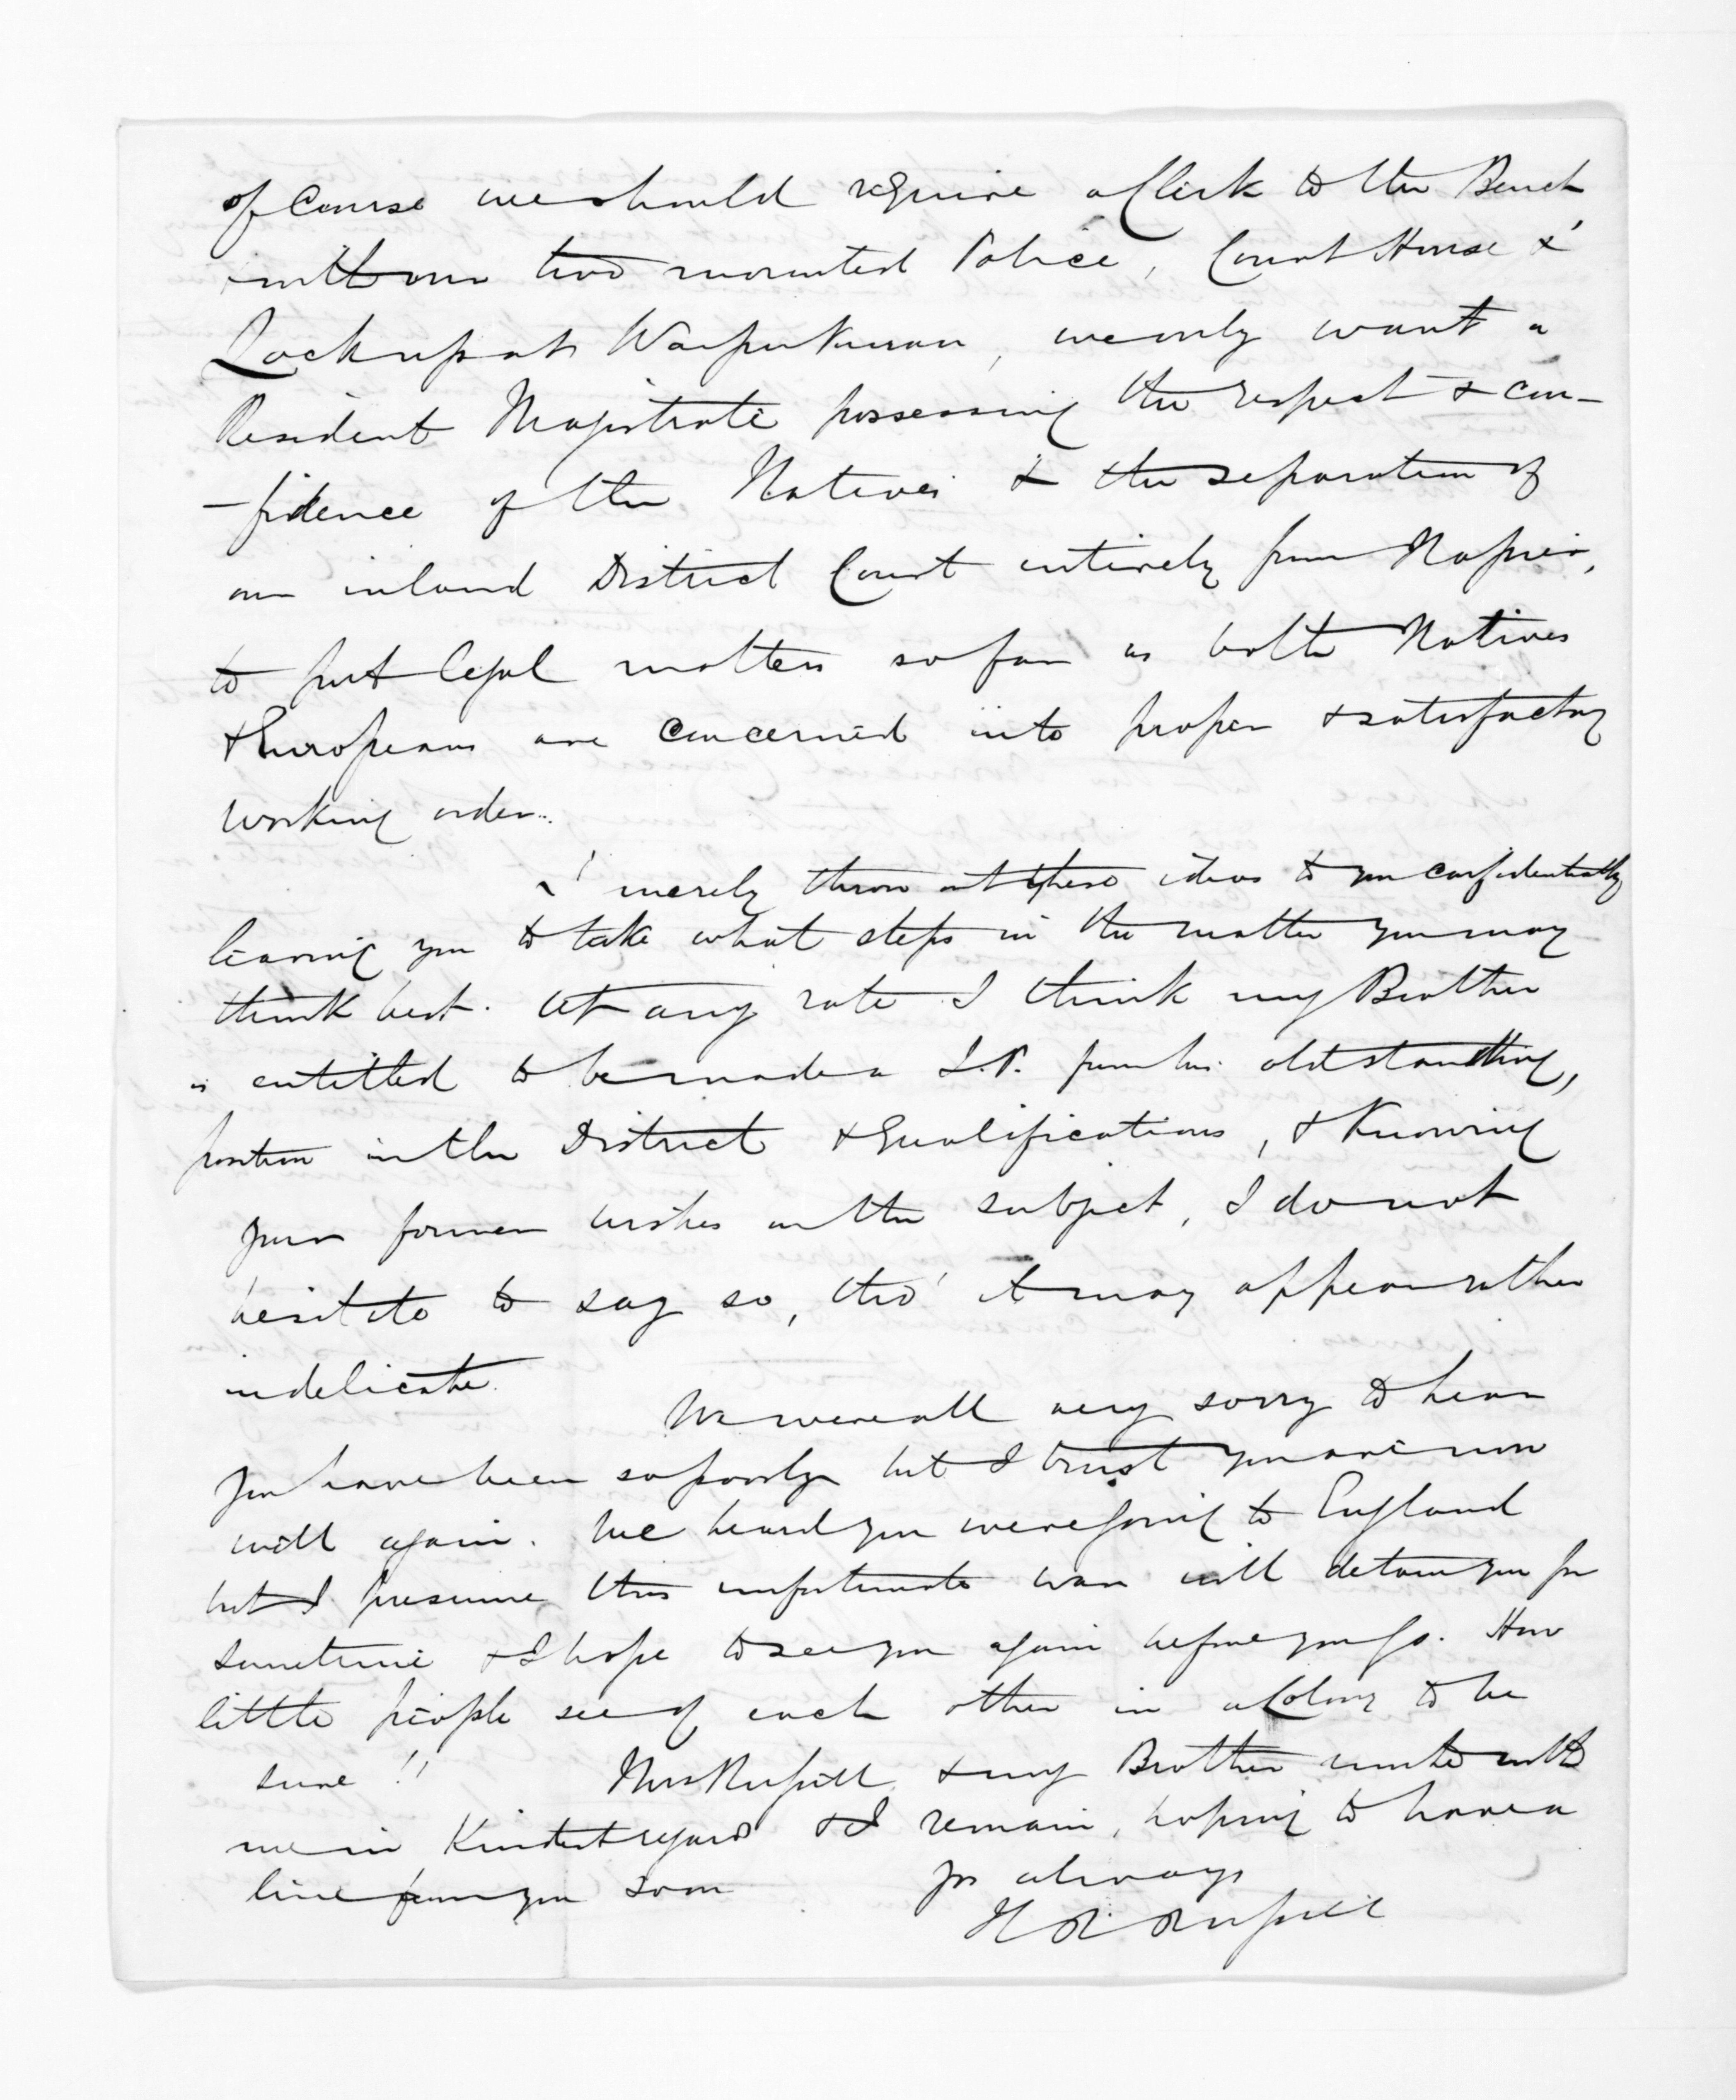 of course we should require a Clerk to the Bench
with our two mounted Police, Court House &
Lockup at Waipukurau, we only want a
Resident Magistrate possessing the respect & con-
-fidence of the Natives & the separation of
our inland District Court entirely from Napier,
to put legal matters so far as both Natives
& Europeans are concerned into proper & satisfactory
working order.
I merely throw out these ideas to you confidentially
leaving you to take what steps in the matter you may
think best. At any rate I think my Brother
is entitled to be made a J.P. from his old standing,
position in the District & qualifications, & knowing
your former wishes on the subject, I do not
hesitate to say so, tho' it may appear rather
indelicate.
We were all very sorry to hear
you have been so poorly but I trust you are now
well again. We heard you were going to England
but I presume this unfortunate war will detain you for
sometime & I hope to see you again before you go. How
little people see of each other in a Colony to be
sure!! Mrs Russell & my Brother unite with
me in Kindest regards & I remain, hoping to have a
line from you soon yrs always
H R Russell